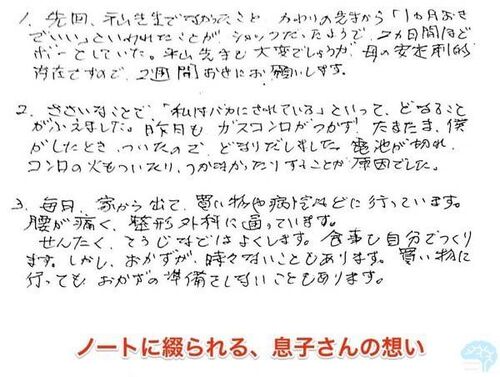 1. 先回、平山先生でなかったこと かわりの先生から「1ヵ月おき
でいい」といわれたことが ショックだったようで、2ヵ月間ほど
ボーとしていた。平山先生も大変でしょうが、母の安定剤的
存在ですので、2週間おきにお願いします。
2. ささいなことで、「私はバカにされている」といって、どなること
がふえました。昨日も ガスコンロがつかず、たまたま、僕
がしたとき、ついたので、どなりだしました。電池が切れ、
コンロの火もついたり、つかなかったりすることが原因でした。
3. 毎日、家から出て、買い物や病院などに行っています。
腰が痛く、整形外科に通っています。
せんたく、そうじなどはよくします。食事も自分でつくり
ます。しかし、おかずが、時々ないこともあります。買い物に
行っても おかずの準備をしないこともあります。
ノートに綴られる、息子さんの想い